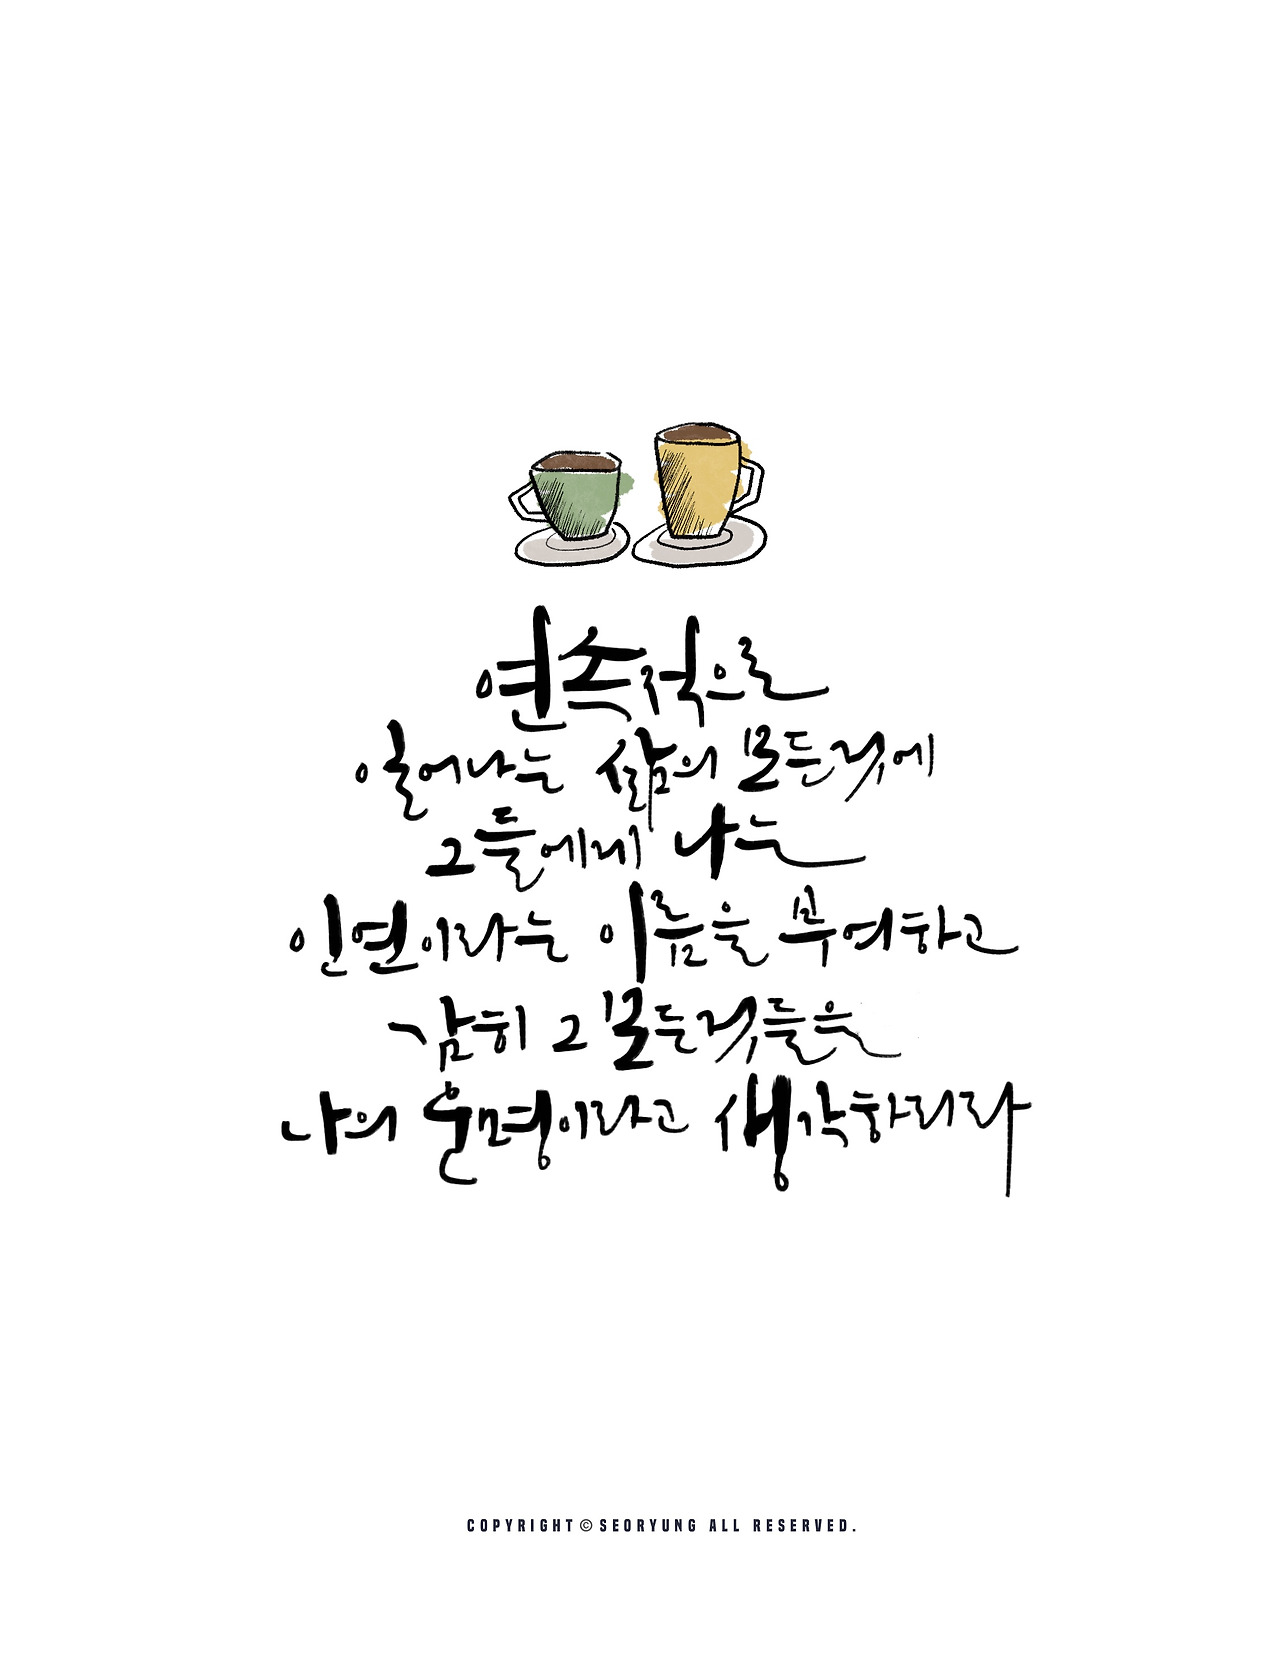 연속적으로
일어나는 삶의 모든것에
그들에게 나는
인연이라는 이름을 부여하고
감히 그 모든것들을
나의 운명이라고 생각하리라
COPYRIGHT © SEORYUNG ALL RESERVED.